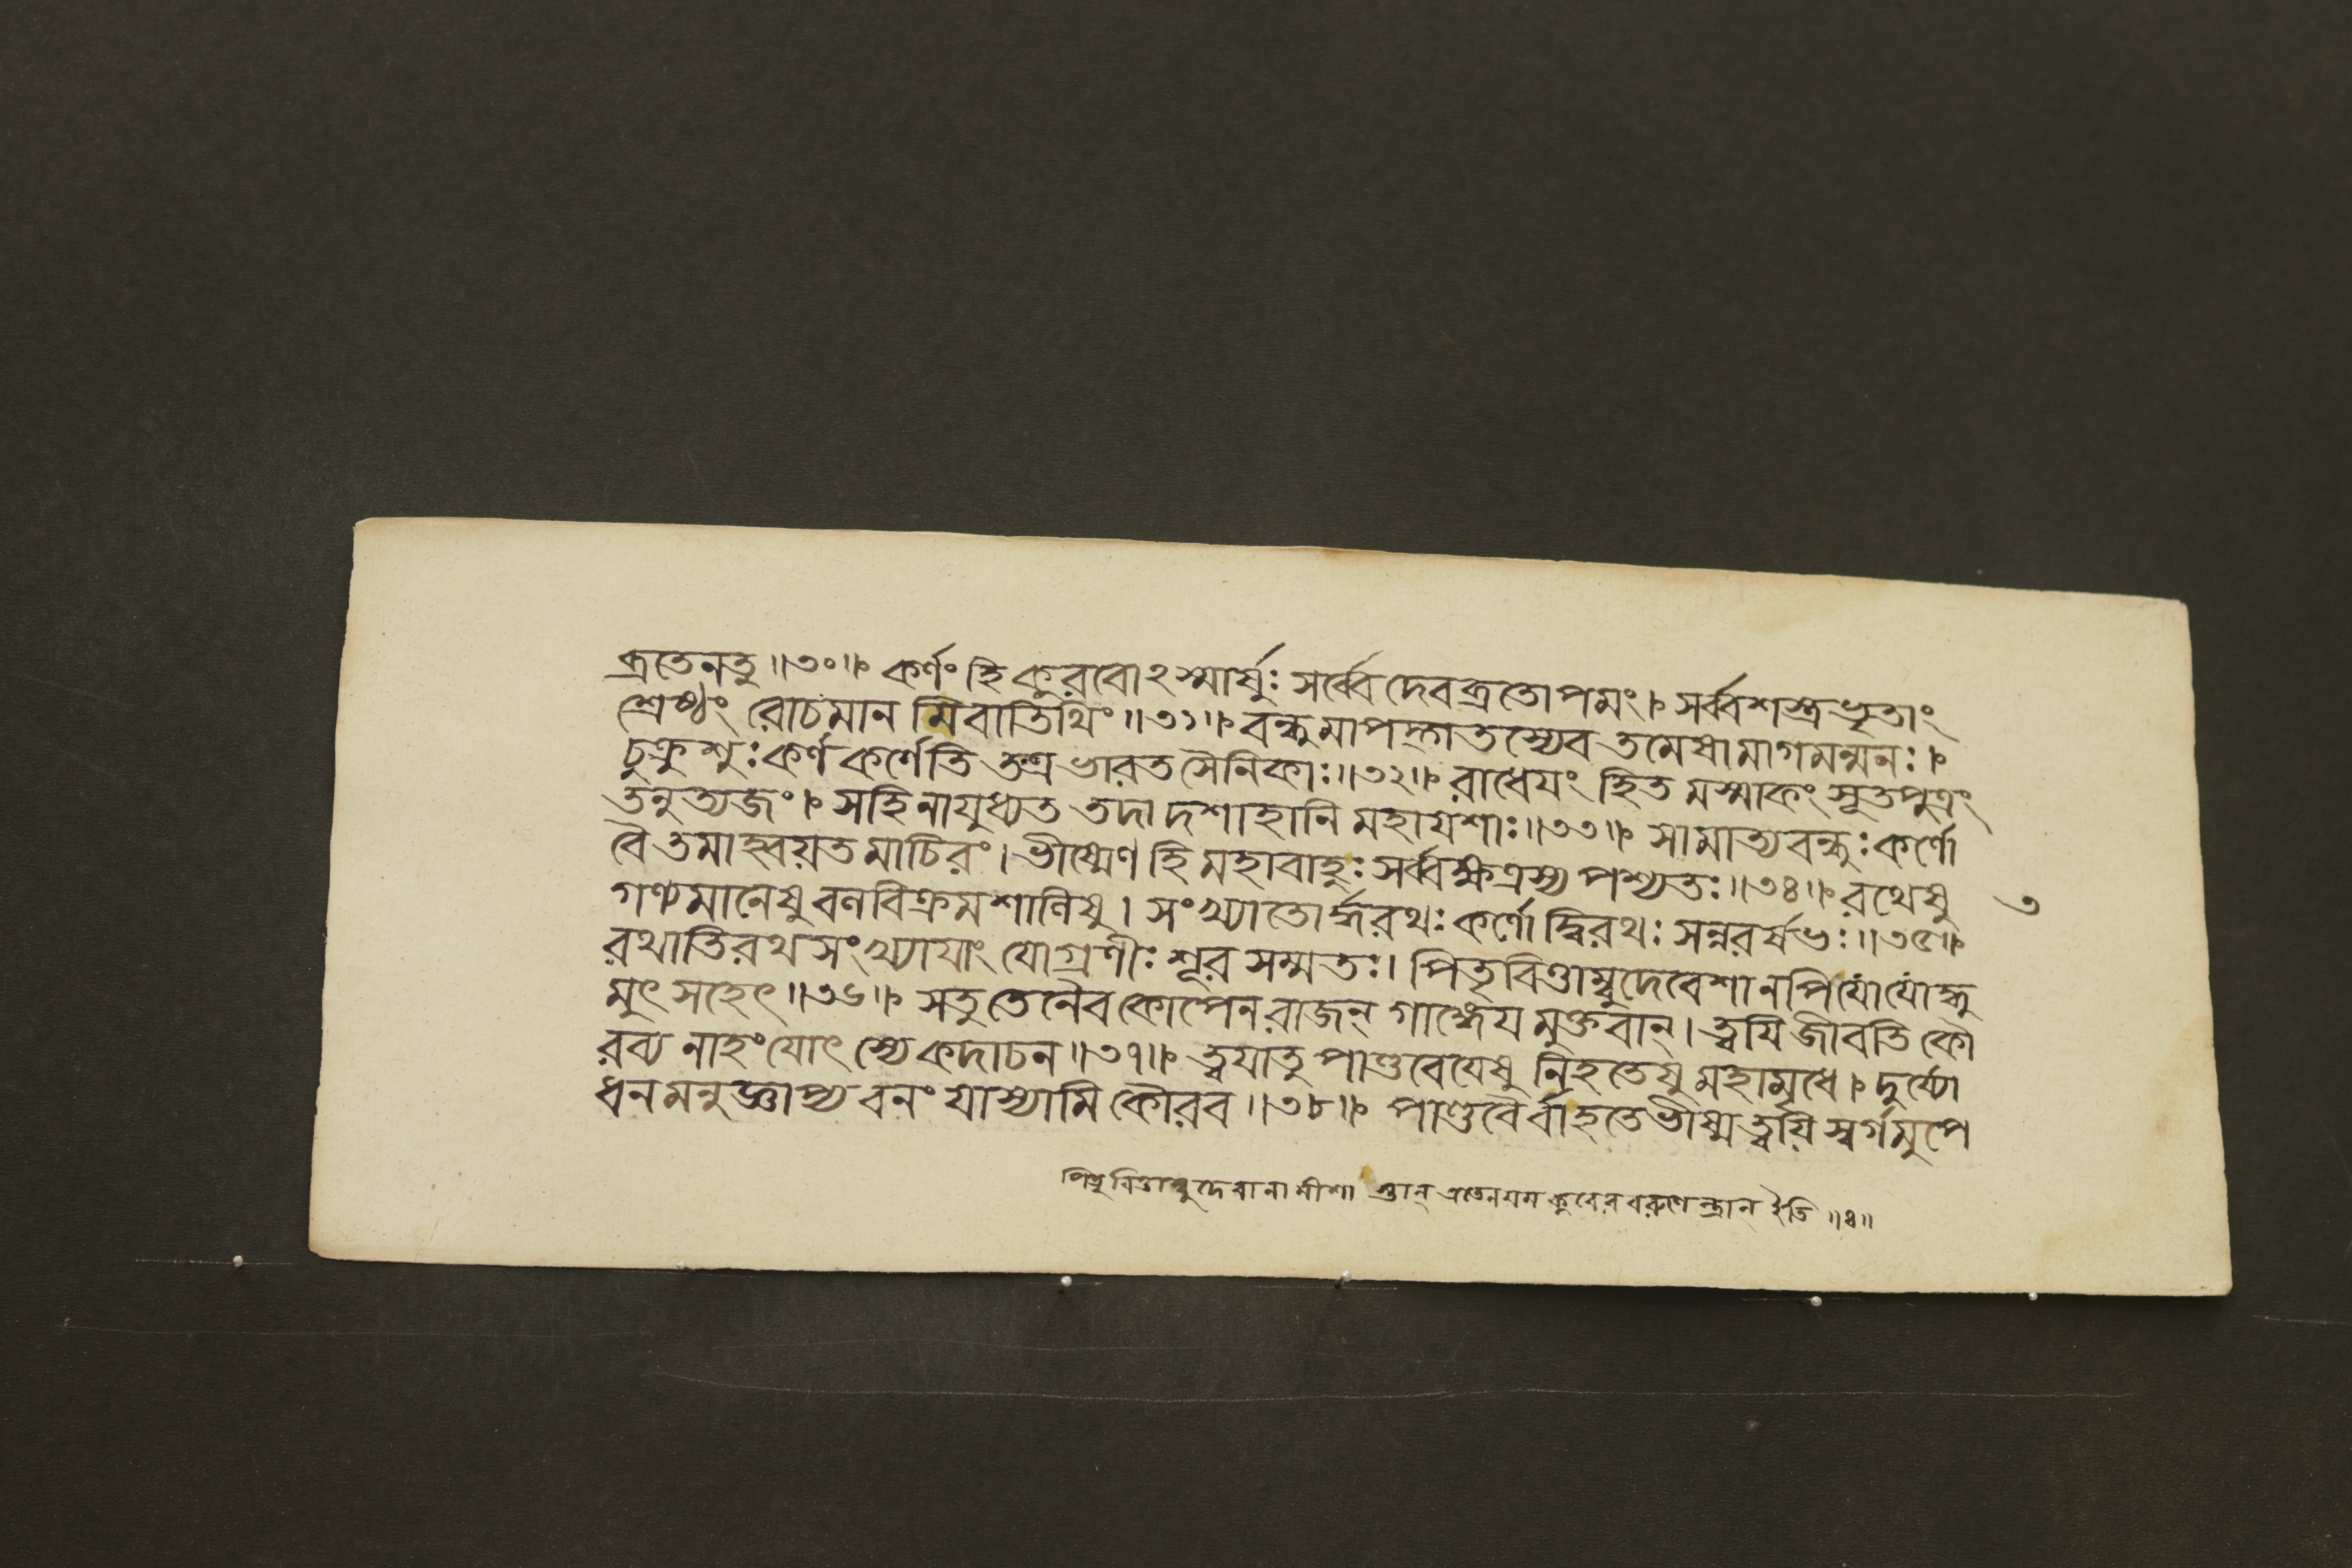 ব্রতেনতু ॥৩০॥ কর্ণং হি কুরবোঽস্মার্ষুঃ সর্ব্বে দেবব্রতোপমং। সর্ব্বশস্ত্রভৃতাং
শ্রেষ্ঠং রোচমান মিবাতিথিং ॥৩১॥ বন্ধুমাপদ্গতস্যেব তমেবোমাগমন্মনঃ।
চুক্রুশুঃ কর্ণ কর্ণেতি তত্র ভারত সৈনিকাঃ॥৩২॥ রাধেয়ং হিত মস্মাকং সূতপুত্রং
তনুত্যজং। সহিনাযুধ্যত তদা দশাহানি মহাযশাঃ॥৩৩॥ সামাত্যবন্ধুঃ কর্ণো
বৈ তমাহ্বয়ত মাচিরং। ভীষ্মেণ হি মহাবাহুঃ সর্ব্বক্ষত্রস্য পশ্যতঃ॥৩৪॥ রথেষু ৩
গণ্যমানেষু বলবিক্রমশালিষু। সংখ্যাতোর্দ্ধরথঃ কর্ণো দ্বিরথঃ সন্নরর্ষভঃ॥৩৫॥
রথাতিরথ সংখ্যাযাং যোগ্রণীঃ শূর সম্মতঃ। পিতৃবিত্তাম্বুদেবেশানপি যো যোদ্ধু
মুৎসহেৎ॥৩৬॥ সতু তেনৈব কোপেন রাজন্ গাঙ্গেয মুক্তবান্। ত্বযি জীবতি কৌ
রব্য নাহং যোৎস্যে কদাচন॥৩৭॥ ত্বযাতু পাণ্ডবেযেষু নিহতেষু মহামৃধে। দুর্য্যো
ধনমনুজ্ঞাপ্য বনং যাস্যামি কৌরব॥৩৮॥ পাণ্ডবৈর্বা হতে ভীষ্ম ত্বয়ি স্বর্গমুপে
পিতৃবিত্তাম্বুদেবানামীশা স্তান্ এতেন যম কুবের বরুণেন্দ্রান্ ইতি ॥৪॥